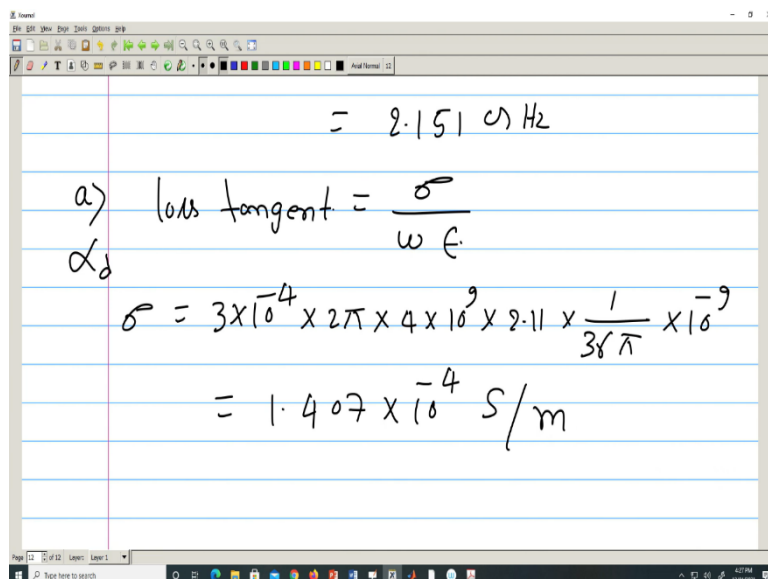 Xournal
File Edit View Page Tools Options Help
Arial Normal 12
= 2.151 GHz
a) loss tangent = σ / ω ϵ
α_d
σ = 3×10^-4 × 2π × 4 × 10^9 × 2.11 × 1/36π × 10^-9
= 1.407 × 10^-4 S/m
Page 12 of 12 Layer: Layer 1
Type here to search 4:27 PM